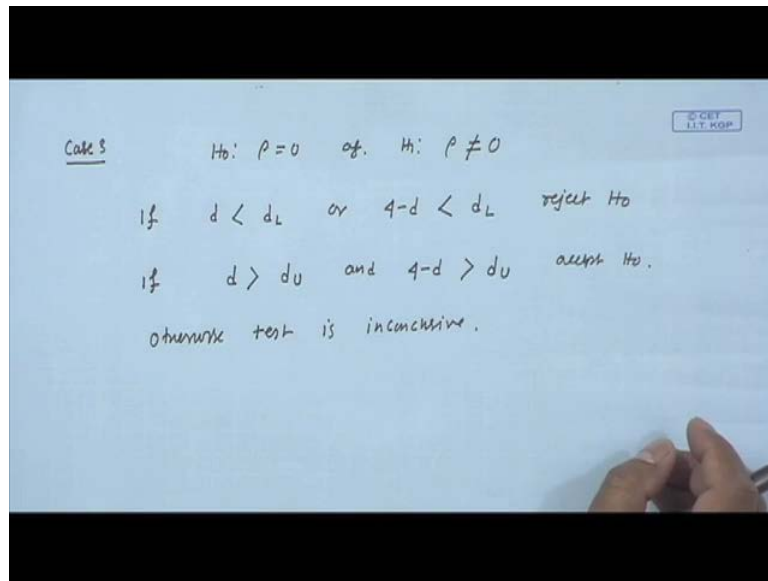 © CET
I.I.T. KGP
Case 3 H₀: ρ = 0 ag. H₁: ρ ≠ 0
If d < d_L or 4-d < d_L reject H₀
If d > d_U and 4-d > d_U accept H₀.
otherwise test is inconclusive.